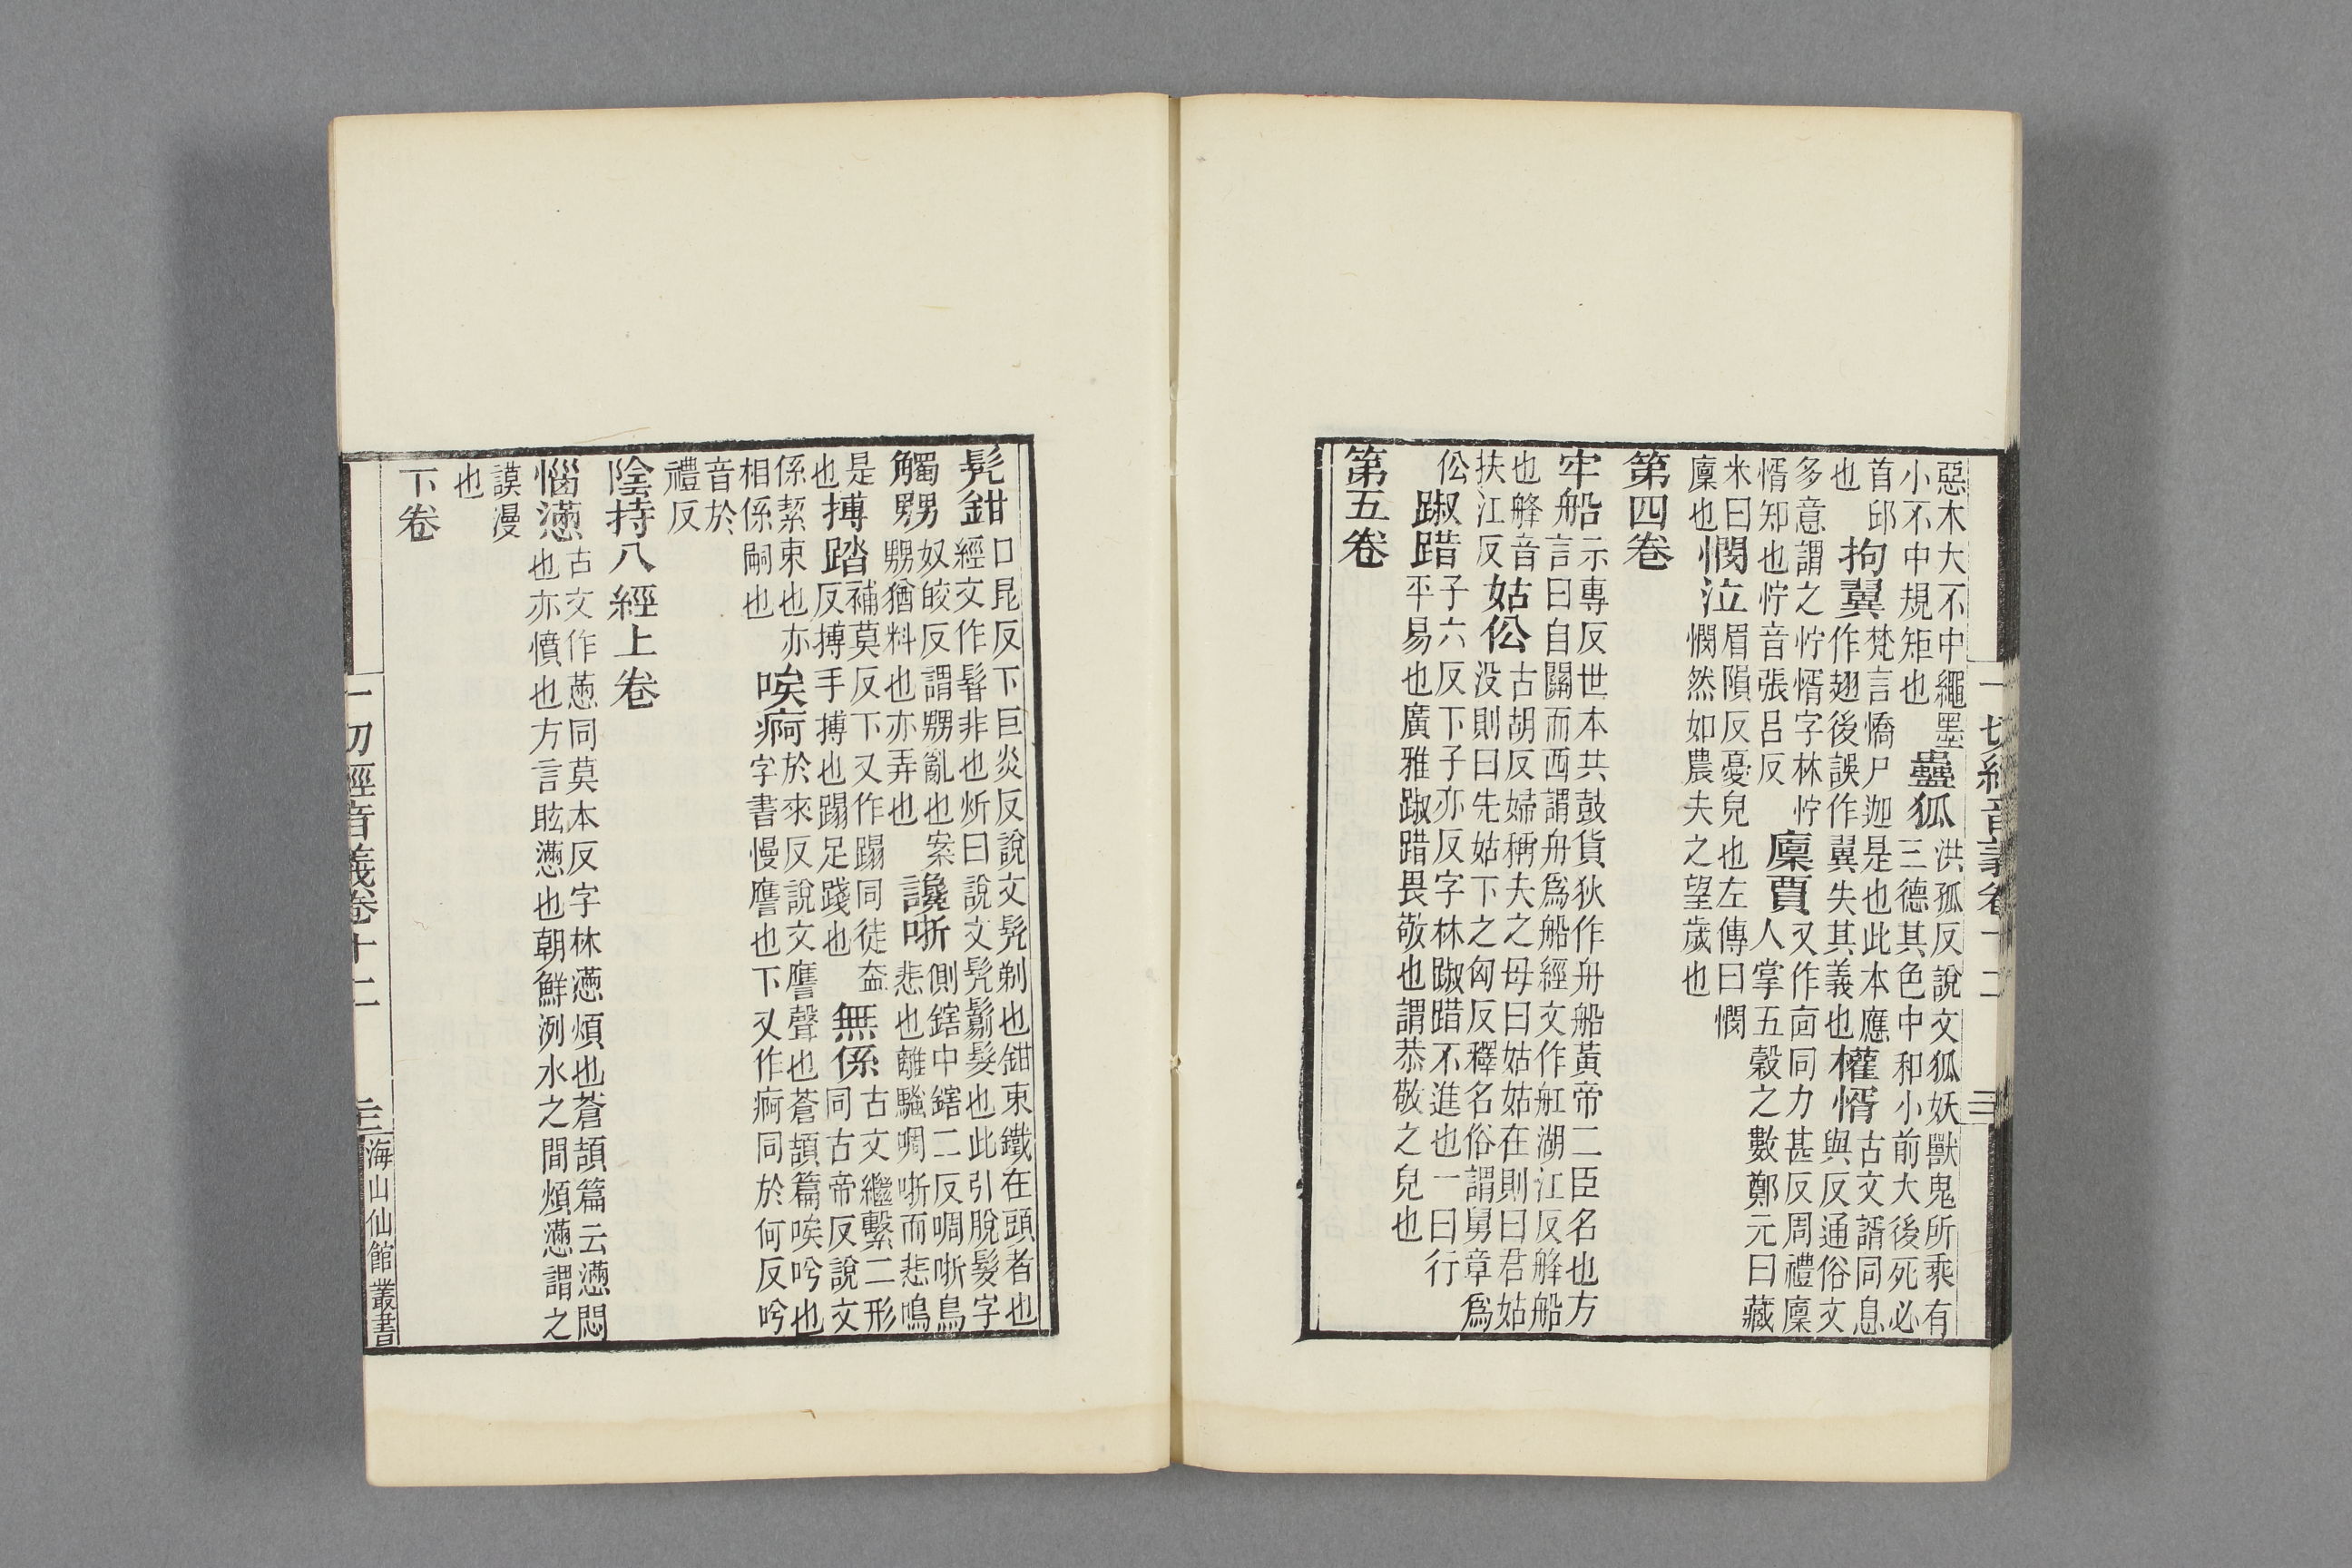 一切經音義卷十二
三
惡木大不中繩墨
小不中規矩也
蠱狐
洪孤反說文狐妖獸鬼所乘有
三德其色中和小前大後死必
首邱
也
拘翼
梵言憍尸迦是也此本應
作翅後誤作翼失其義也
權惰
古文諝同息
與反通俗文
多意謂之㤖惰字林㤖
惰知也㤖音張呂反
廩賈
又作㐭同力甚反周禮廩
人掌五穀之數鄭元曰藏
米曰
廩也
憫泣
眉隕反憂皃也左傳曰憫
憫然如農夫之望歲也
第四卷
牢船
示專反世本共鼓貨狄作舟船黃帝二臣名也方
言曰自關而西謂舟爲船經文作舡湖江反舽船
也舽音
扶江反
姑伀
古胡反婦稱夫之母曰姑姑在則曰君姑
没則曰先姑下之匈反釋名俗謂舅章爲
伀
踧踖
子六反下子亦反字林踧踖不進也一曰行
平易也廣雅踧踖畏敬也謂恭敬之皃也
第五卷
髠鉗
口昆反下巨炎反說文髠剃也鉗束鐵在頭者也
經文作髾非也炘曰說文髠鬀髮也此引脫髮字
觸嬲
奴皎反謂嬲亂也案
嬲猶料也亦弄也
讒哳
側鎋中鎋二反啁哳鳥
悲也離騷啁哳而悲鳴
是
也
搏踏
補莫反下又作蹋同徒盍
反搏手搏也蹋足踐也
無係
古文繼繫二形
同古帝反說文
係絜束也亦
相係嗣也
唉痾
於來反說文譍聲也蒼頡篇唉吟也
字書慢譍也下又作疴同於何反吟
音於
禮反
陰持入經上卷
惱懣
古文作悗同莫本反字林懣煩也蒼頡篇云懣悶
也亦憤也方言眩懣也朝鮮洌水之間煩懣謂之
謨漫
也
下卷
一切經音義卷十二
三
海山仙館叢書